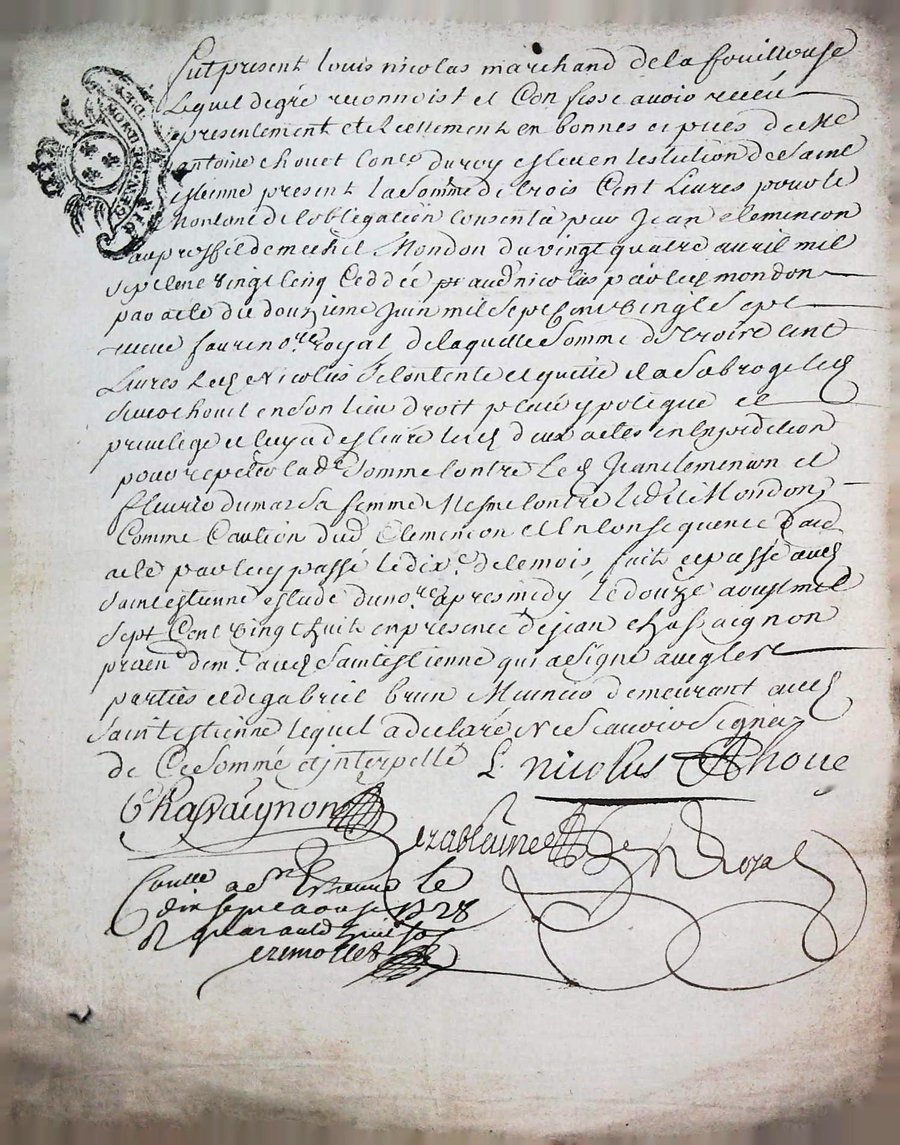 Fut present Louis nicolas marchand de la fouillouse
Lequel de gré reconnoist et Confesse avoir reçeu
presentement et en bonnes especes de Me
antoine chouet Coner du roy esleu en lesłection de Saint
estienne present la Somme de trois Cent Livres pour le
montont de lobligation Consentie par Jean clemencon
au proffit de michel Mondon du vingt quatre avril mil
sept cent vingt cinq Ceddée aud nicolas par led mondon
par acte du douzieme Juin mil Sept Cent vingt Sept
receue faure nore royal de laquelle Somme de troire cent
Livres Led Nicolas Se contente et quitte et a Subrogé led
Sieur chouet en Son lieu droit place ypoteque et
privilege et luy a deslivré les deux actes en Expedition
pour repeter lade Somme contre Led Jean clemencon et
fleurie dumas Sa femme Mesme contre ledit Mondon
Comme Caution dud Clemencon et En Consequence
acte par luy passé le dixe de ce mois, fait et passé aud
Saint estienne estude du nore apres midy Le douze aoust mil
Sept Cent vingt huit en presence de jean chassaignon
praen demt aud Saint estienne qui a Signé avec les
parties et de gabriel brun demeurant aud
Saint estienne lequel a declaré Ne Scavoir Signer
de Ce Sommé et interpellé L. nicolas Achoue
Chassaignon
Royal
Conllé a St Etienne le
dix sept aoust 1728